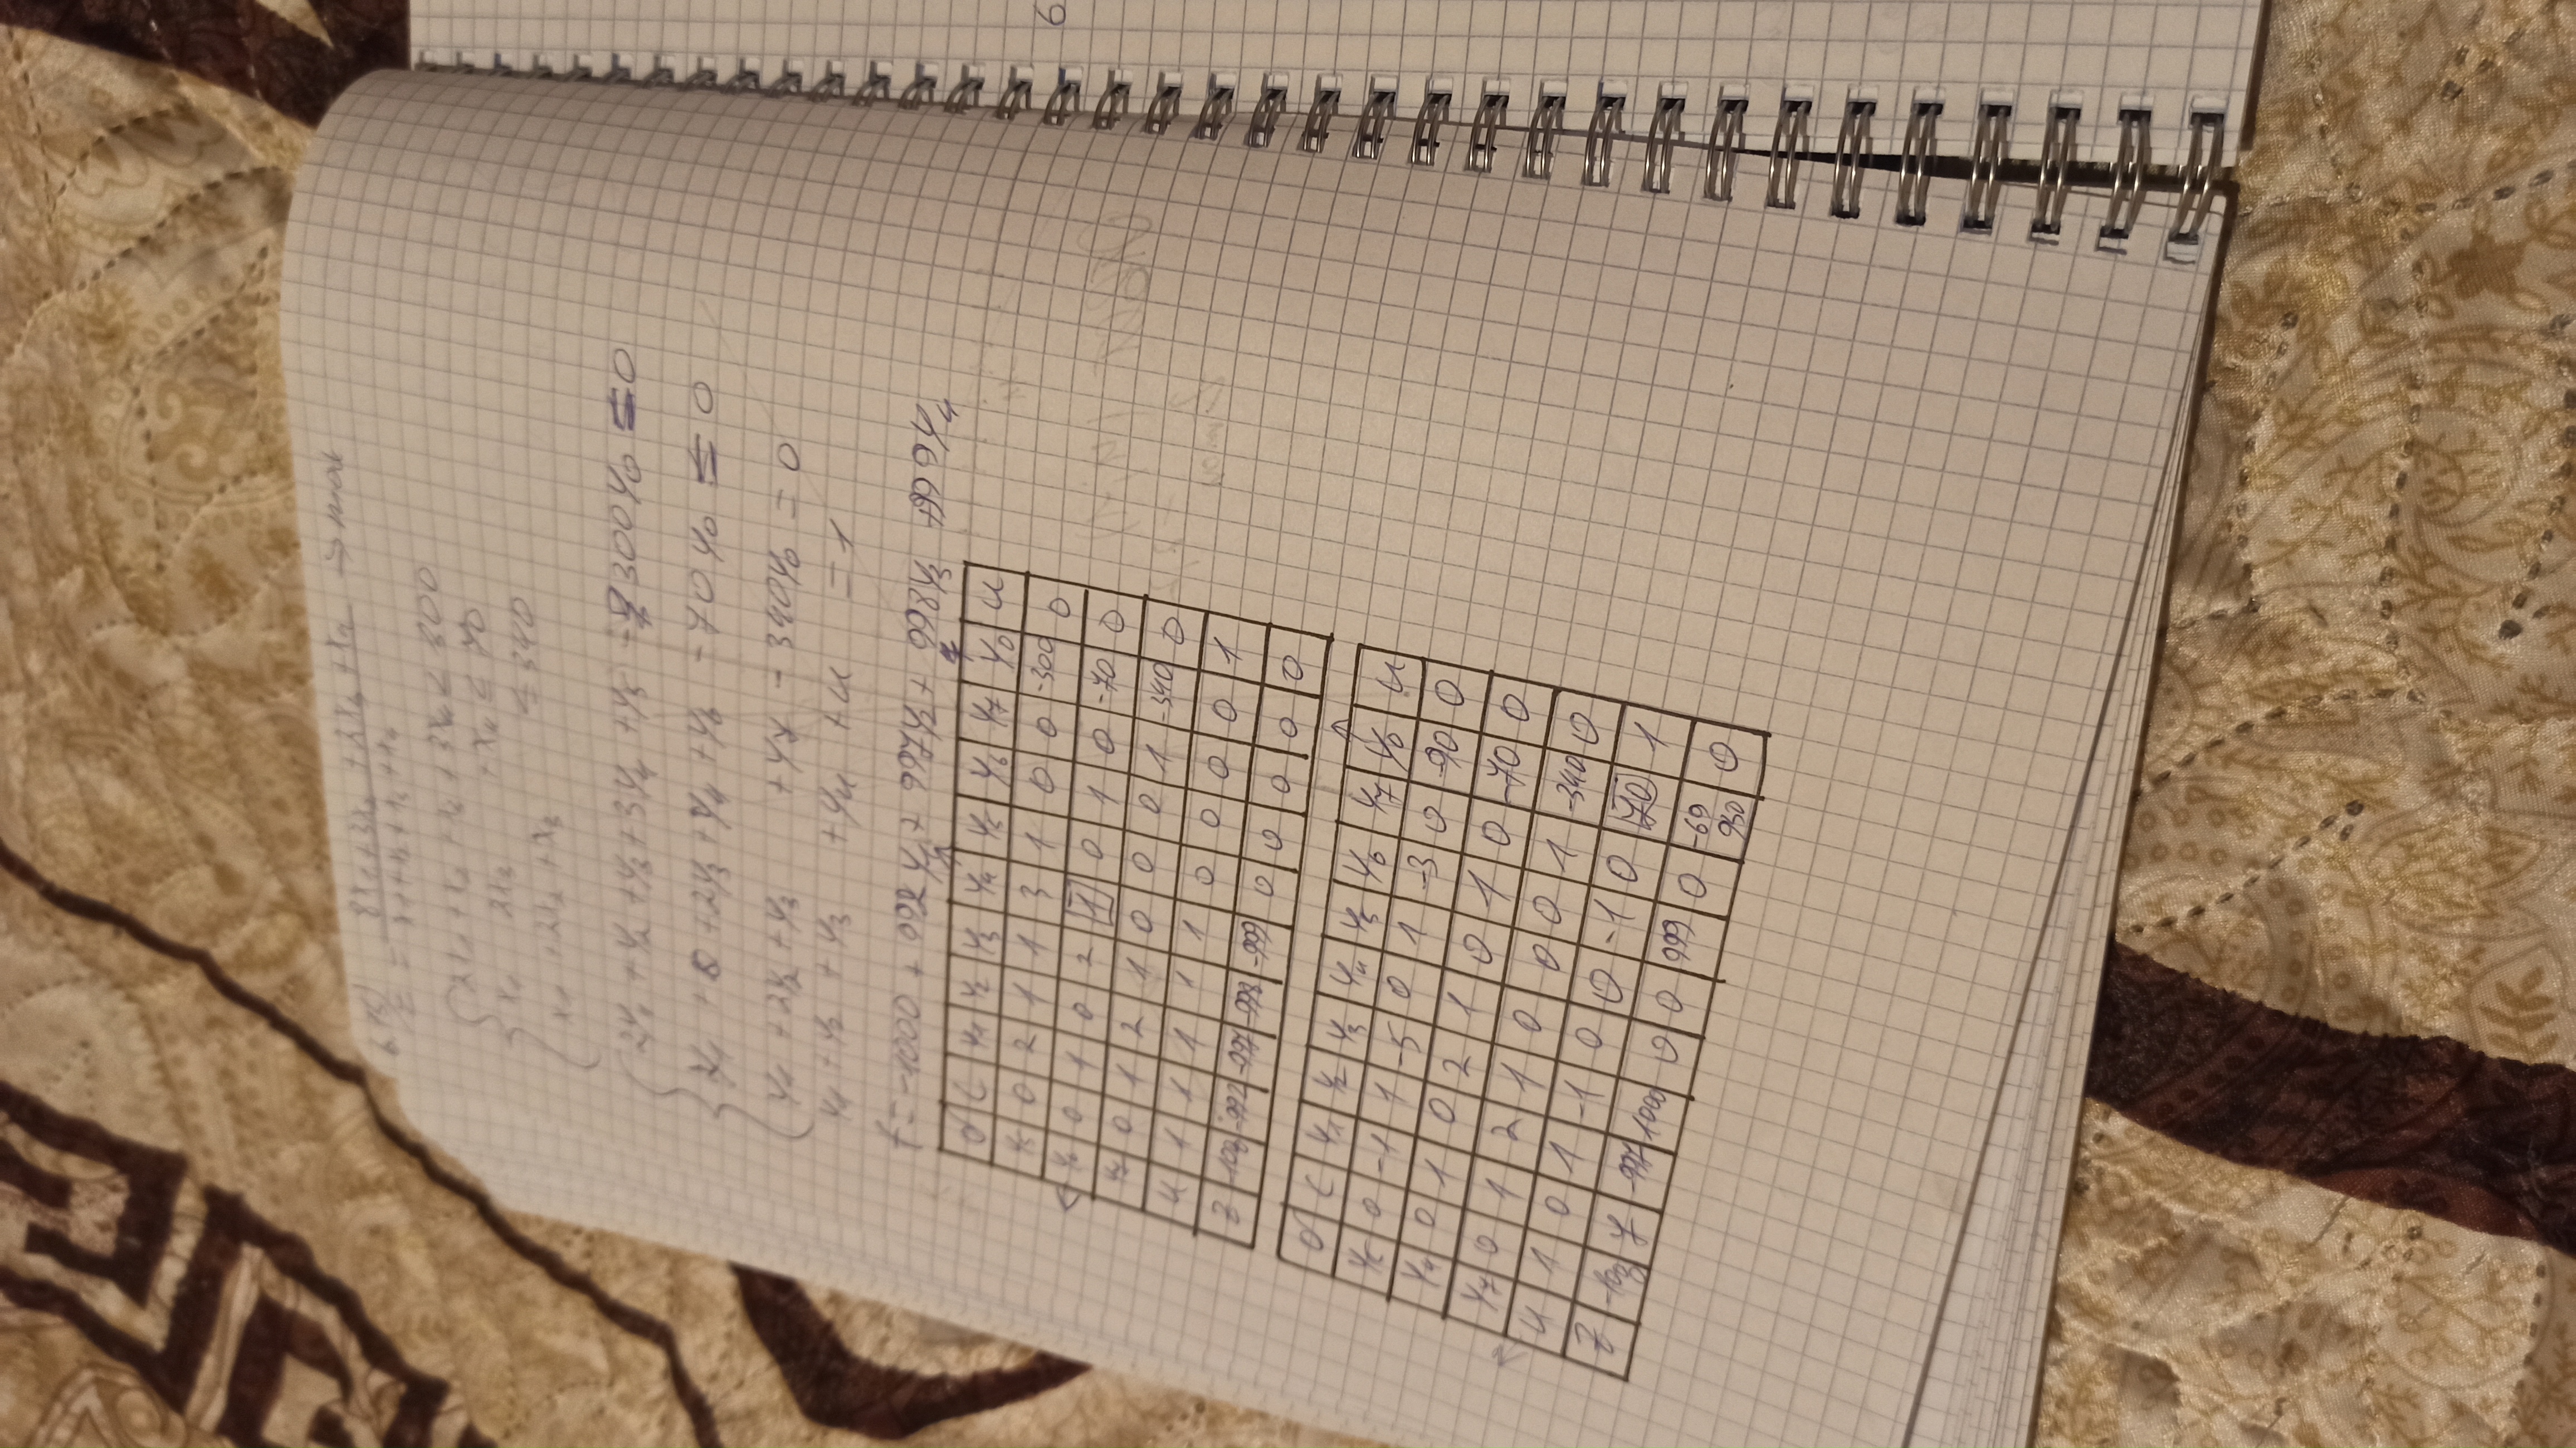 8x₁+3x₂ +2x₃ +x₄ → max
z = x₁+x₂+x₃+x₄
2x₁ +x₂ +x₃ +3x₄ ≤ 300
x₁ 2x₃ +x₄ ≤ 70
x₁ +2x₂ +x₃ ≤ 340
2y₁ +y₂ +y₃ +3y₄ +y₅ - 300y₀ = 0
y₁ + 0 +2y₃ +y₄ +y₆ -70y₀ = 0
y₁ +2y₂ +y₃ +y₇ - 340y₀ = 0
y₁ +y₂ +y₃ +y₄ +u = 1
f = -1000 + 992y₁ + 997y₂ + 998y₃ +999y₄
δ C y₁ y₂ y₃ y₄ y₅ y₆ y₇ y₀ u
y₅ 0 2 1 1 3 1 0 0 -300 0
y₆ 0 1 0 2 1 0 1 0 -70 0
y₇ 0 1 2 1 0 0 0 1 -340 0
u 1 1 1 1 1 0 0 0 0 1
z -992 -997 -998 -999 0 0 0 0 0
δ C y₁ y₂ y₃ y₄ y₅ y₆ y₇ y₀ u
y₅ 0 -1 1 -5 0 1 -3 0 -90 0
y₄ 0 1 0 2 1 0 1 0 -70 0
y₇ 0 1 2 1 0 0 0 1 -340 0
u 1 0 1 -1 0 0 -1 0 70 1
z 7 -997 1000 0 0 999 0 -69 930 0
6